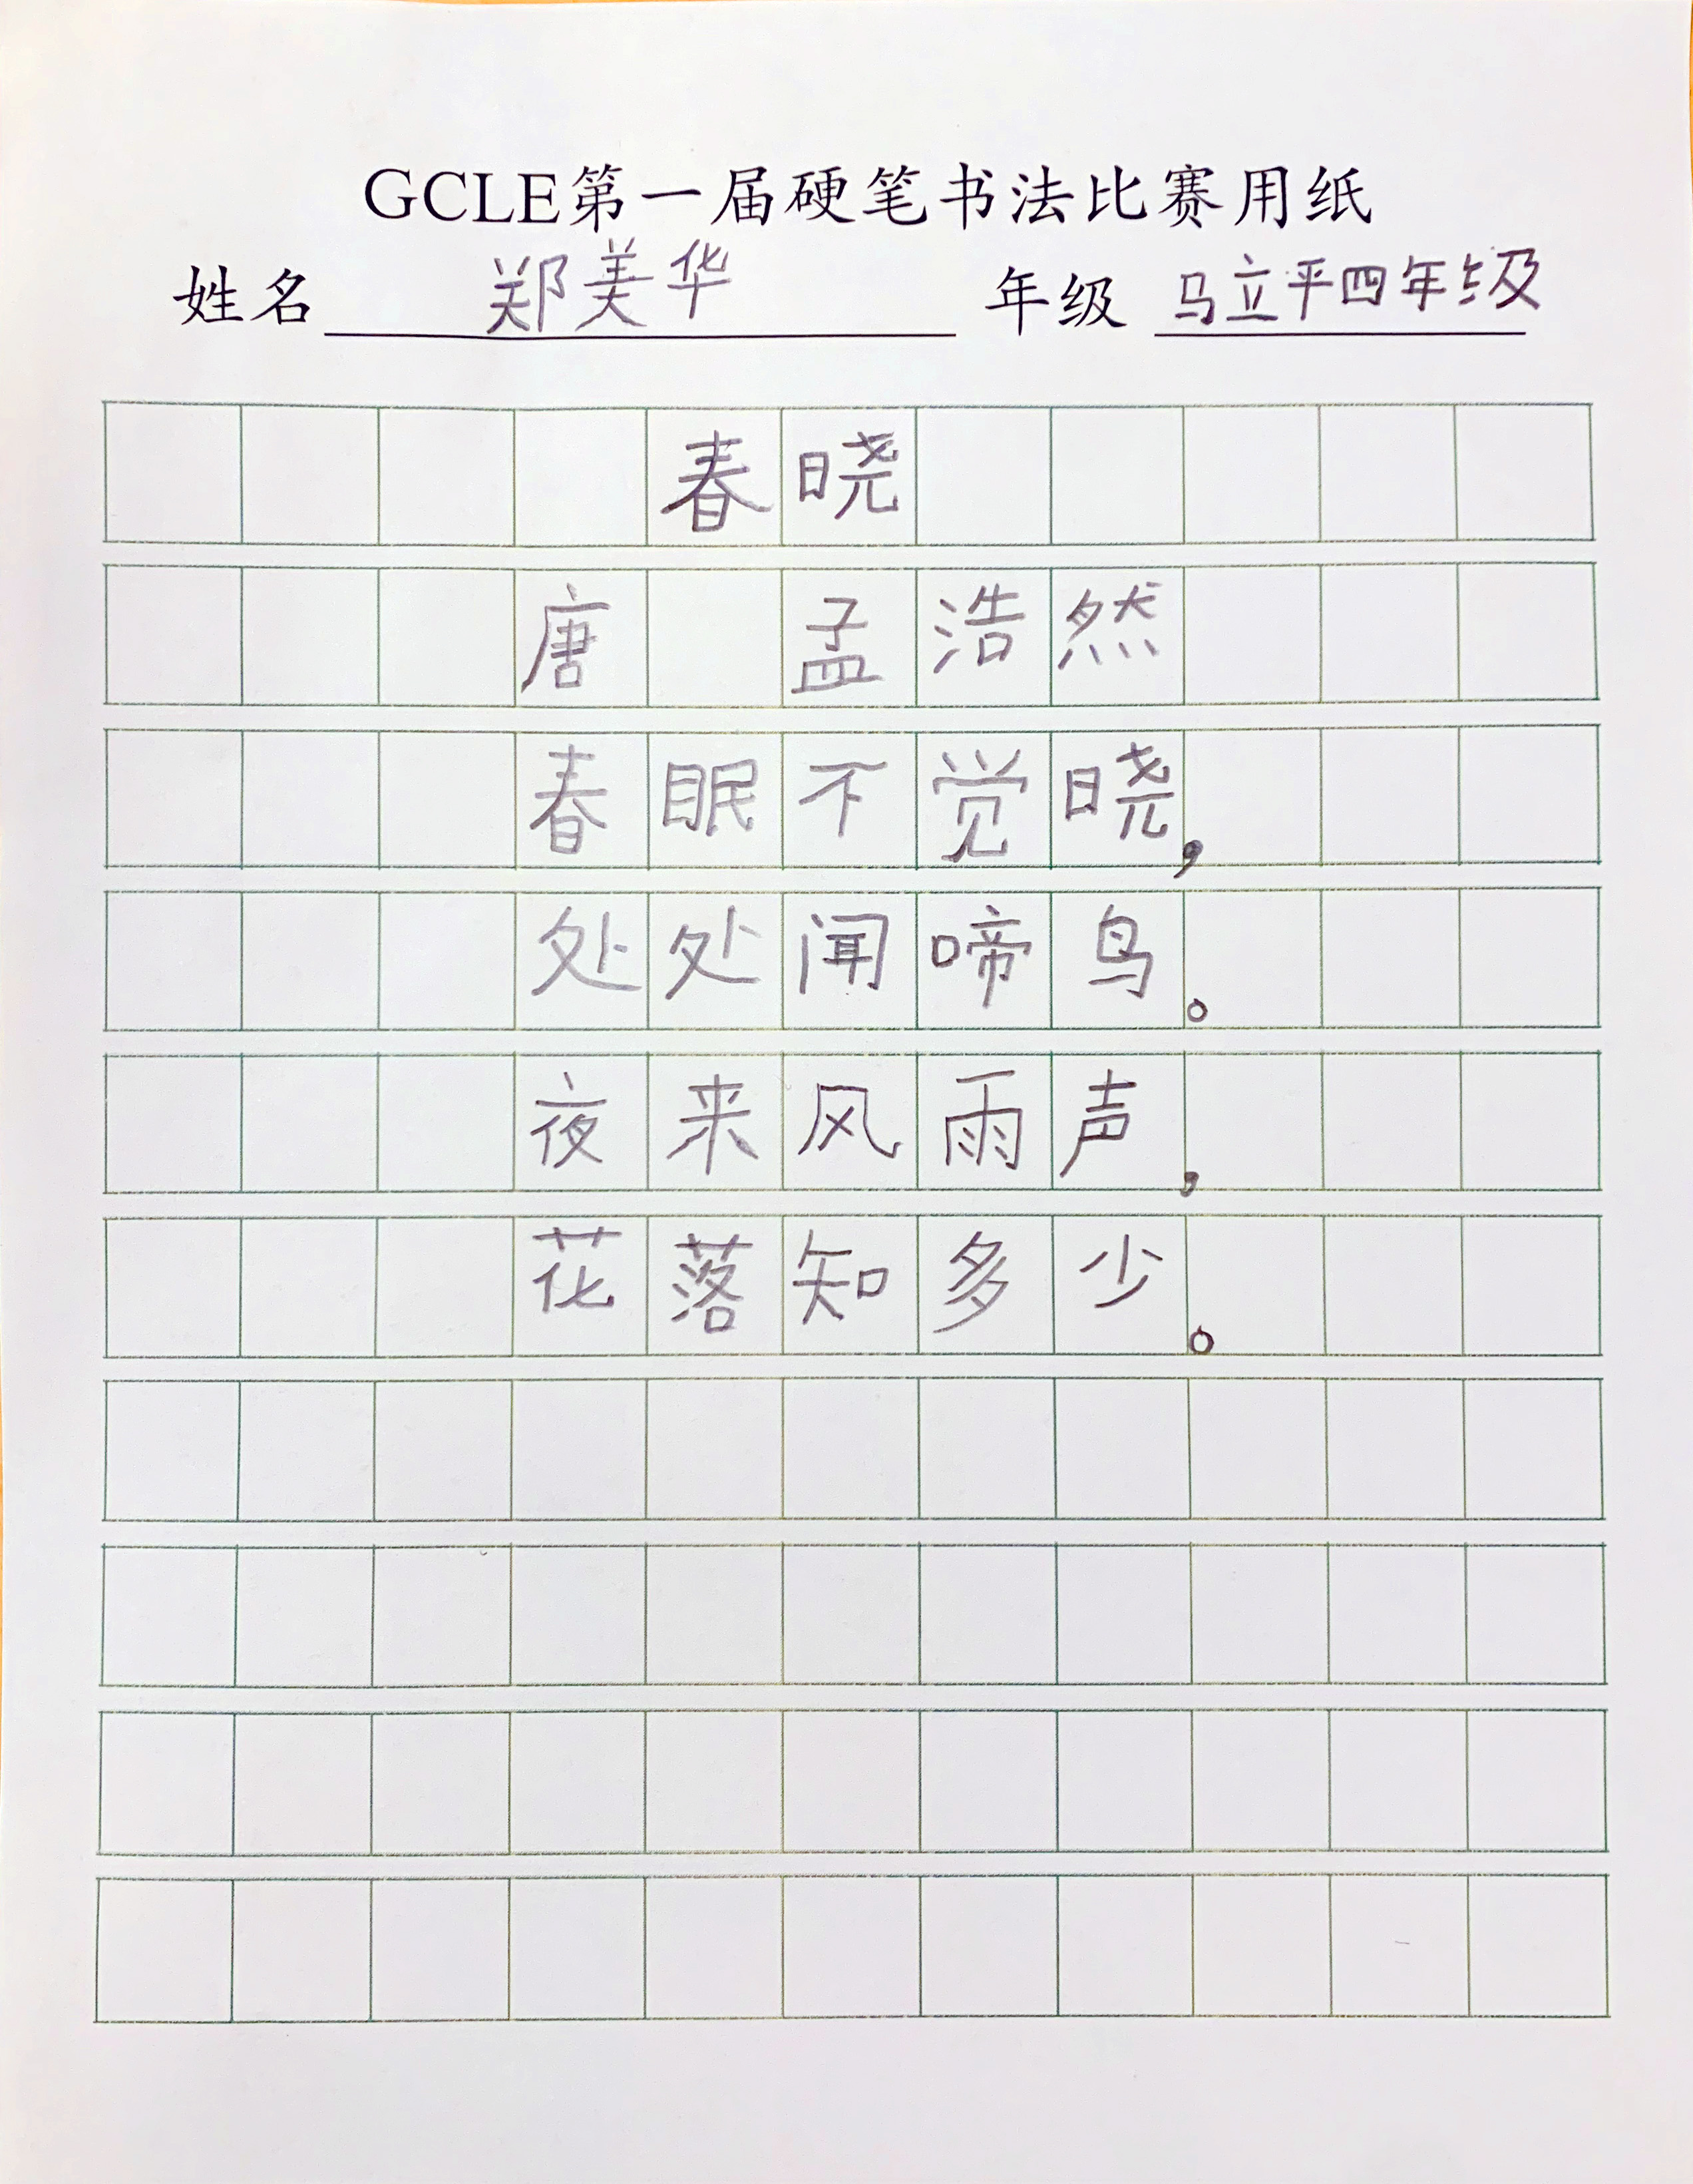 GCLE第一届硬笔书法比赛用纸
姓名 郑美华 年级 马立平四年级
春晓
唐 孟浩然
春眠不觉晓，
处处闻啼鸟。
夜来风雨声，
花落知多少。